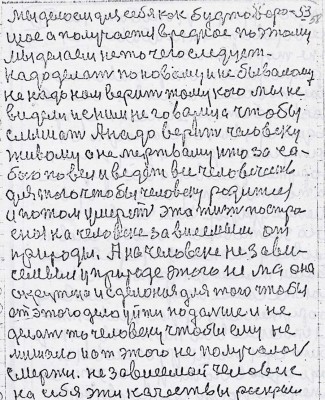 мы делаем для себя как будто хоро- 53
шое а получается вредное поэтому
мы делаем не то чего следует.
надо делат по новому и не бывалому
не надо нам верит тому кого мы не
видели и с ним не говарили чтобы
слышат А надо верит человеку
живому а не мертвому кто за са-
бою повел и ведет все человечество
для того чтобы человеку родится
и потом умерет эта жизн постра
ена на человеке зависемым от
природы. А на человеке не зави-
семым у природе этого не
и сделоная для того чтобы
от этого дела уйти подалше и не
делат то человеку чтобы ему не
мишало и от этого не получалас
смерти. не зависемой человек
на себя эти качествы